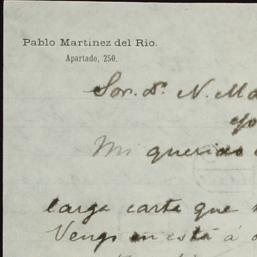 Pablo Martinez del Rio.
Apartado, 250.
Sor. Dn. N. Ma
Mi querido
larga carta que
Vengo en está á